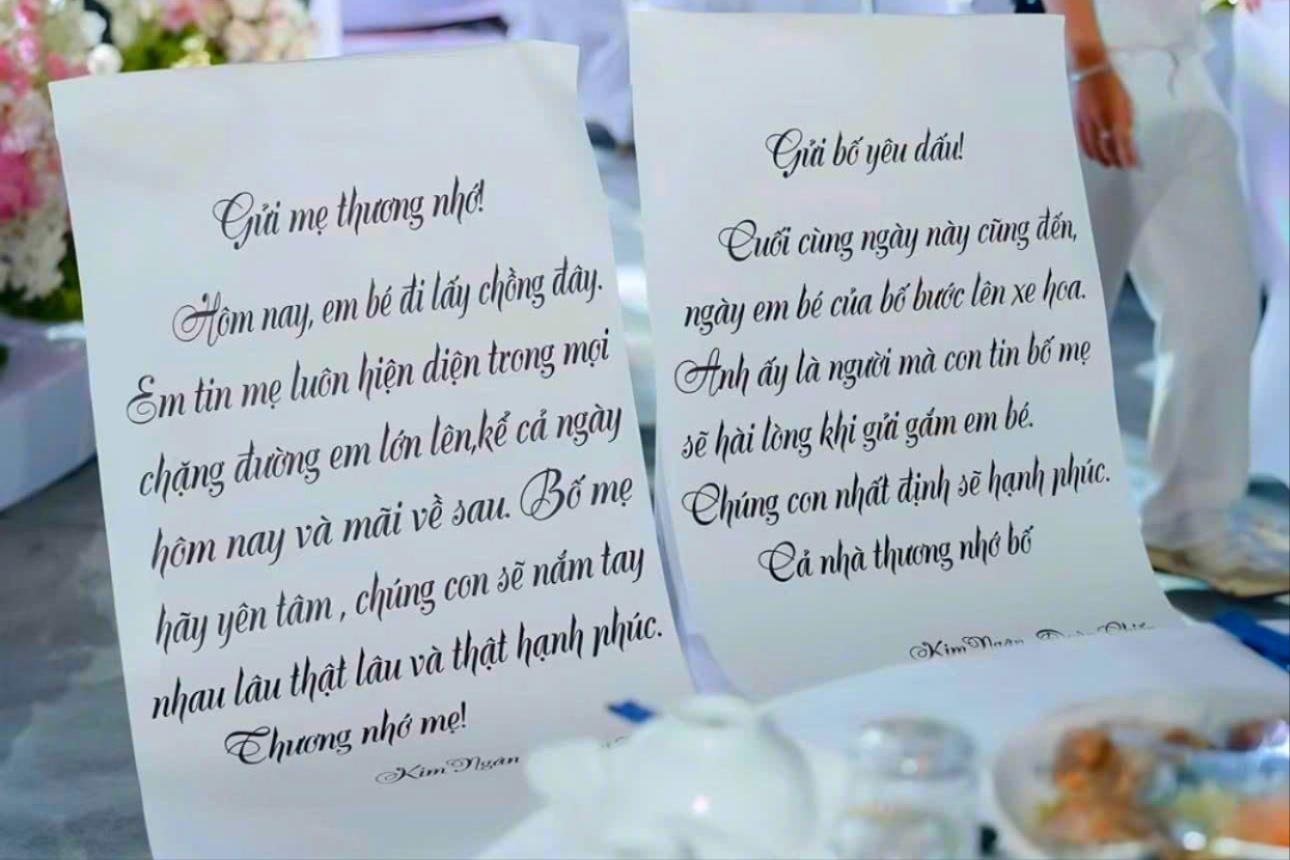 Gửi mẹ thương nhớ!
Hôm nay, em bé đi lấy chồng đây.
Em tin mẹ luôn hiện diện trong mọi
chặng đường em lớn lên,kể cả ngày
hôm nay và mãi về sau. Bố mẹ
hãy yên tâm , chúng con sẽ nắm tay
nhau lâu thật lâu và thật hạnh phúc.
Thương nhớ mẹ!
Kim Ngân
Gửi bố yêu dấu!
Cuối cùng ngày này cũng đến,
ngày em bé của bố bước lên xe hoa.
Anh ấy là người mà con tin bố mẹ
sẽ hài lòng khi gửi gắm em bé.
Chúng con nhất định sẽ hạnh phúc.
Cả nhà thương nhớ bố
Kim Ngân